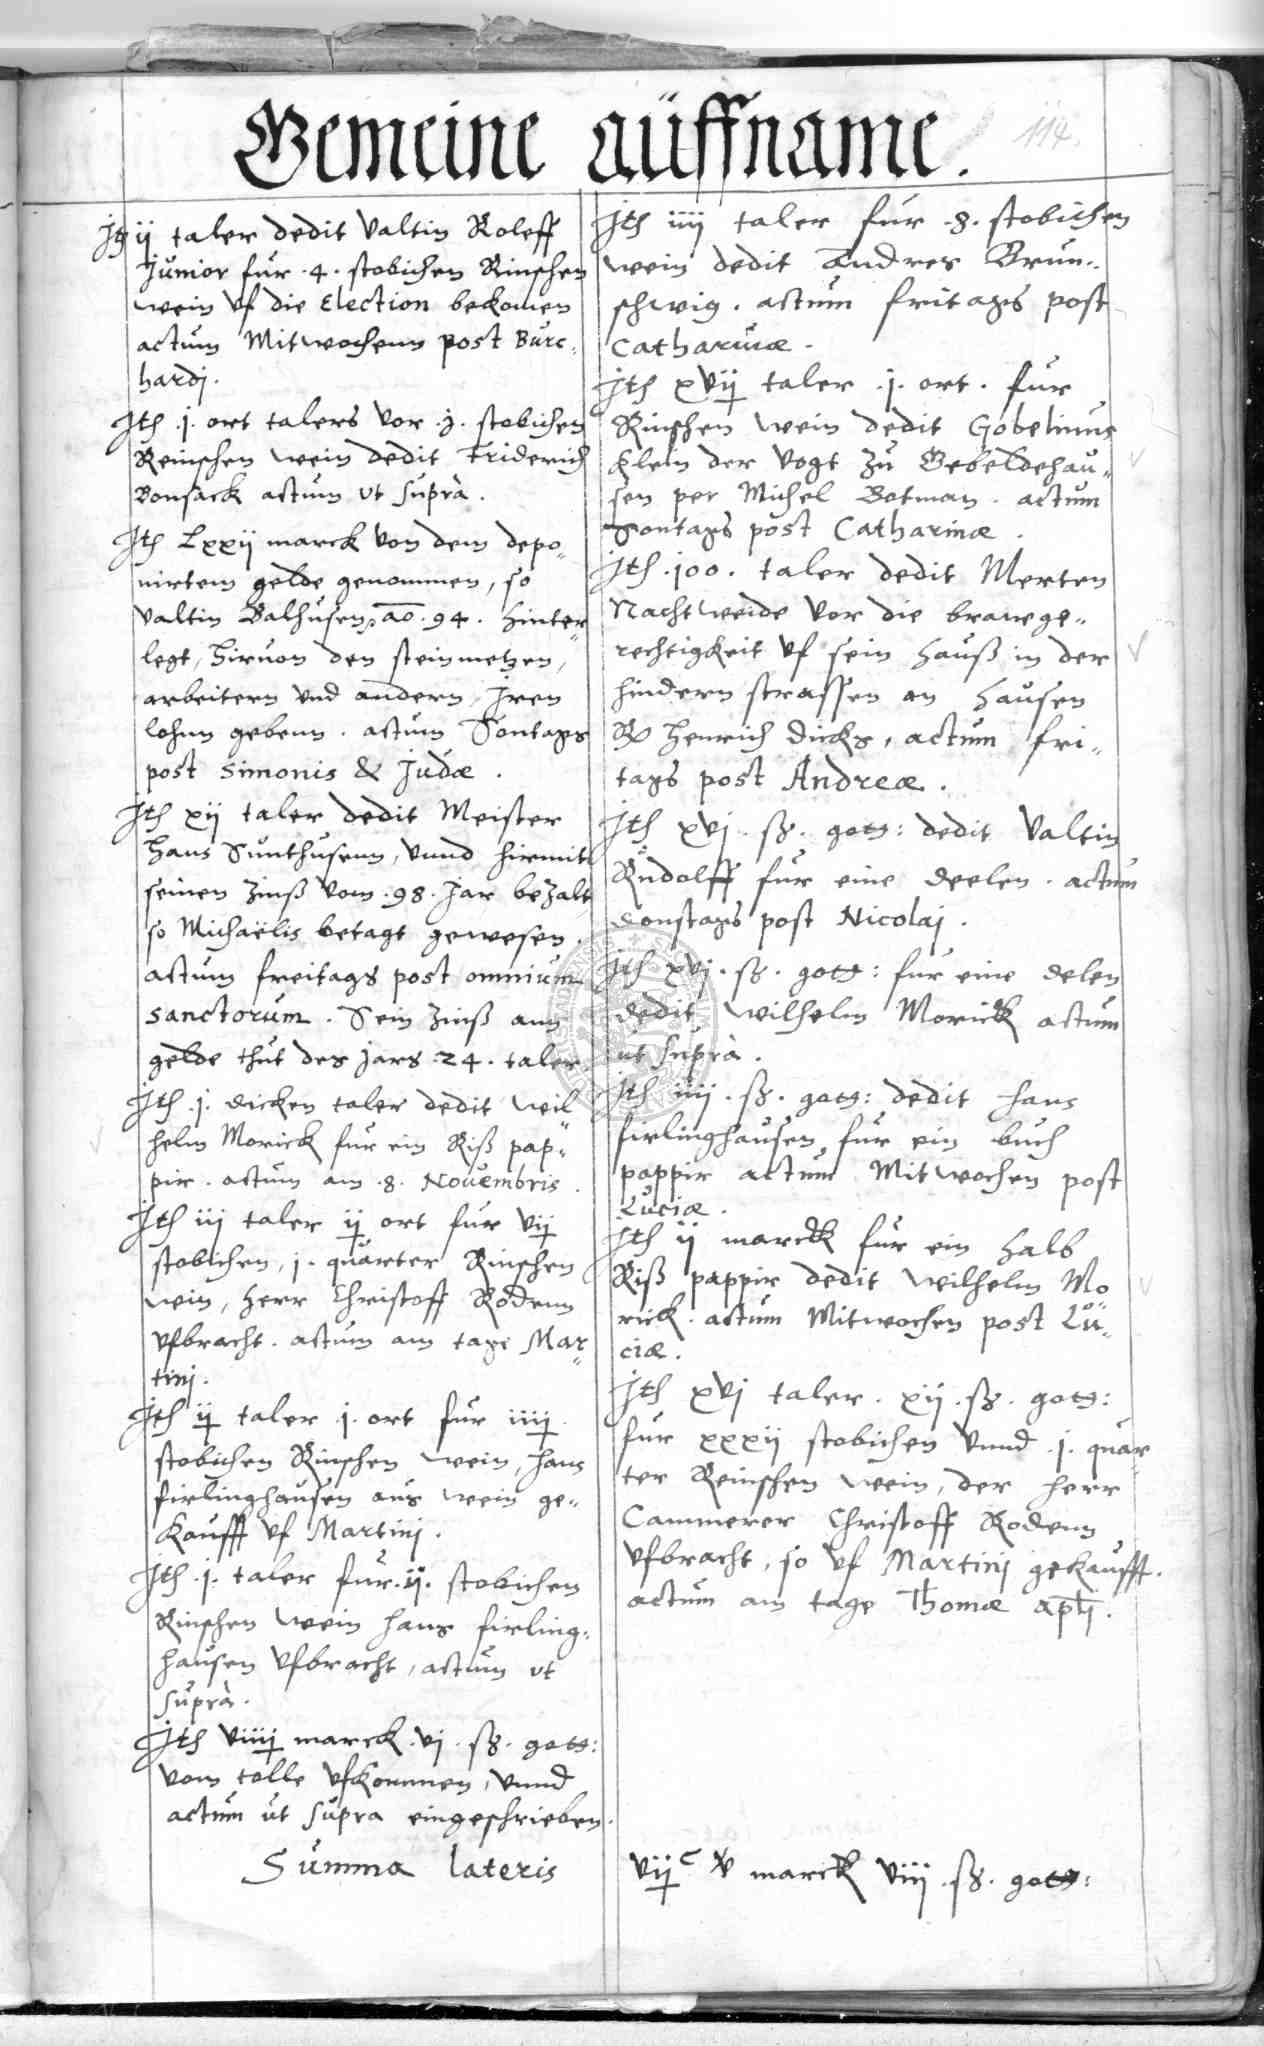 Gemeine auffname.
114.
Jtem ij taler dedit Valtin Roleff
Junior fur .4. stobichen Rinschen
wein vf die Election bekomen
actum Mitwochenn post Burc-
hardj.
Jtem .j. ort talers vor .j. stobichen
Reinschen wein dedit Friderich
Bonsack actum vt suprà.
Jtem Lxxij marck von dem depo-
nirtem gelde genommen, so
Valtin Balhusen, ao. 94. hinter-
legt, hiruon den steinmetzen,
arbeitern vnd andern, Jren
lohnn gebenn. actum Sontags
post Simonis & Judæ.
Jtem xij taler dedit Meister
Hans Sunthusenn, vnnd hirmit
seinen zinß vom .98. Jar bezalt
so Michaëlis betagt gewesen.
actum freitags post omnium
sanctorum. Sein zinß ann
gelde thut des Jars .24. taler
Jtem .j. dicken taler dedit Wil-
helm Morick fur ein Riß pap-
pir. actum am .8. Nouembris.
Jtem iij taler ij ort fur vij
stobichen, j. quarter Rinschen
wein, Herr Christoff Rodenn
vfbracht. actum am tage Mar-
tinj.
Jtem ij taler .j. ort fur iiij
stobichen Rinschen wein, Hans
firlinghausen aus wein ge-
kaufft vf Martinj.
Jtem .j. taler fur .ij. stobichen
Rinschen wein Hans firling-
hausen vfbracht, actum vt
suprà.
Jtem viiij marck .vj. sß. gots:
vom tolle vfkommen, vnnd
actum ut supra eingeschrieben.
Summa lateris
Jtem iiij taler fur .8. stobichen
wein dedit Andres Brun-
schwig. actum fritags post
Catharinæ.
Jtem xvij taler .j. ort. fur
Rinschen wein dedit Gobelinus
Klein der Vogt zu Gebeldehau-
sen per Michel Botman. actum
Sontags post Catharinæ.
Jtem .100. taler dedit Merten
Nachtweide vor die brawge-
rechtigkeit vf sein hauß in der
hindern strassen an hausen
Henrich Dicks, actum fri-
tags post Andreæ.
Jtem xvj. sß. gots: dedit Valtin
Rudolff fur eine deelen. actum
donstags post Nicolaj.
Jtem xvj. sß. gots: fur eine delen
dedit Wilhelm Morick actum
ut suprà.
Jtem iiij. sß. gots: dedit Hans
firlinghausen fur ein buch
pappir actum Mitwochen post
Luciæ.
Jtem ij marck fur ein halb
Riß pappir dedit Wilhelm Mo-
rick. actum Mitwochen post Lu-
ciæ.
Jtem xvj taler. xij. sß. gots:
fur xxxij stobichen vnnd .j. quar-
ter Reinschen wein, der Herr
Cammerer Christoff Rodenn
vfbracht, so vf Martinj gekaufft.
actum am tage Thomæ aptj.
vijc xv marck viij. sß. gots: